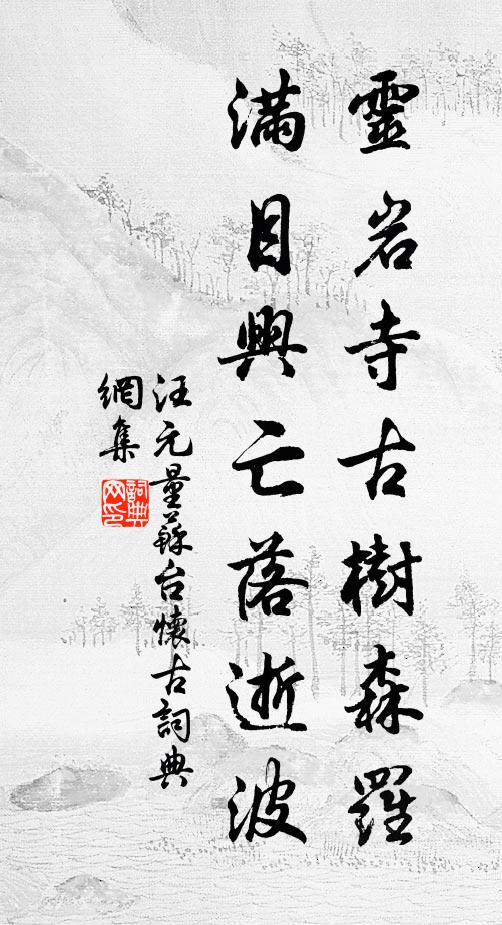 靈岩寺古樹森羅
滿目興亡落逝波
汪元量蘇台懷古詞典
網集
詞典
网印